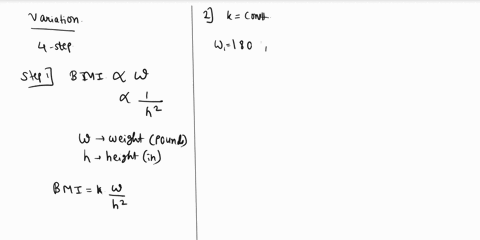 Variation
4-step
Step 1] BMI ∝ w
∝ 1/h²
w → weight (pounds)
h → height (in)
BMI = k w/h²
2] k = const
w₁ = 180 ,